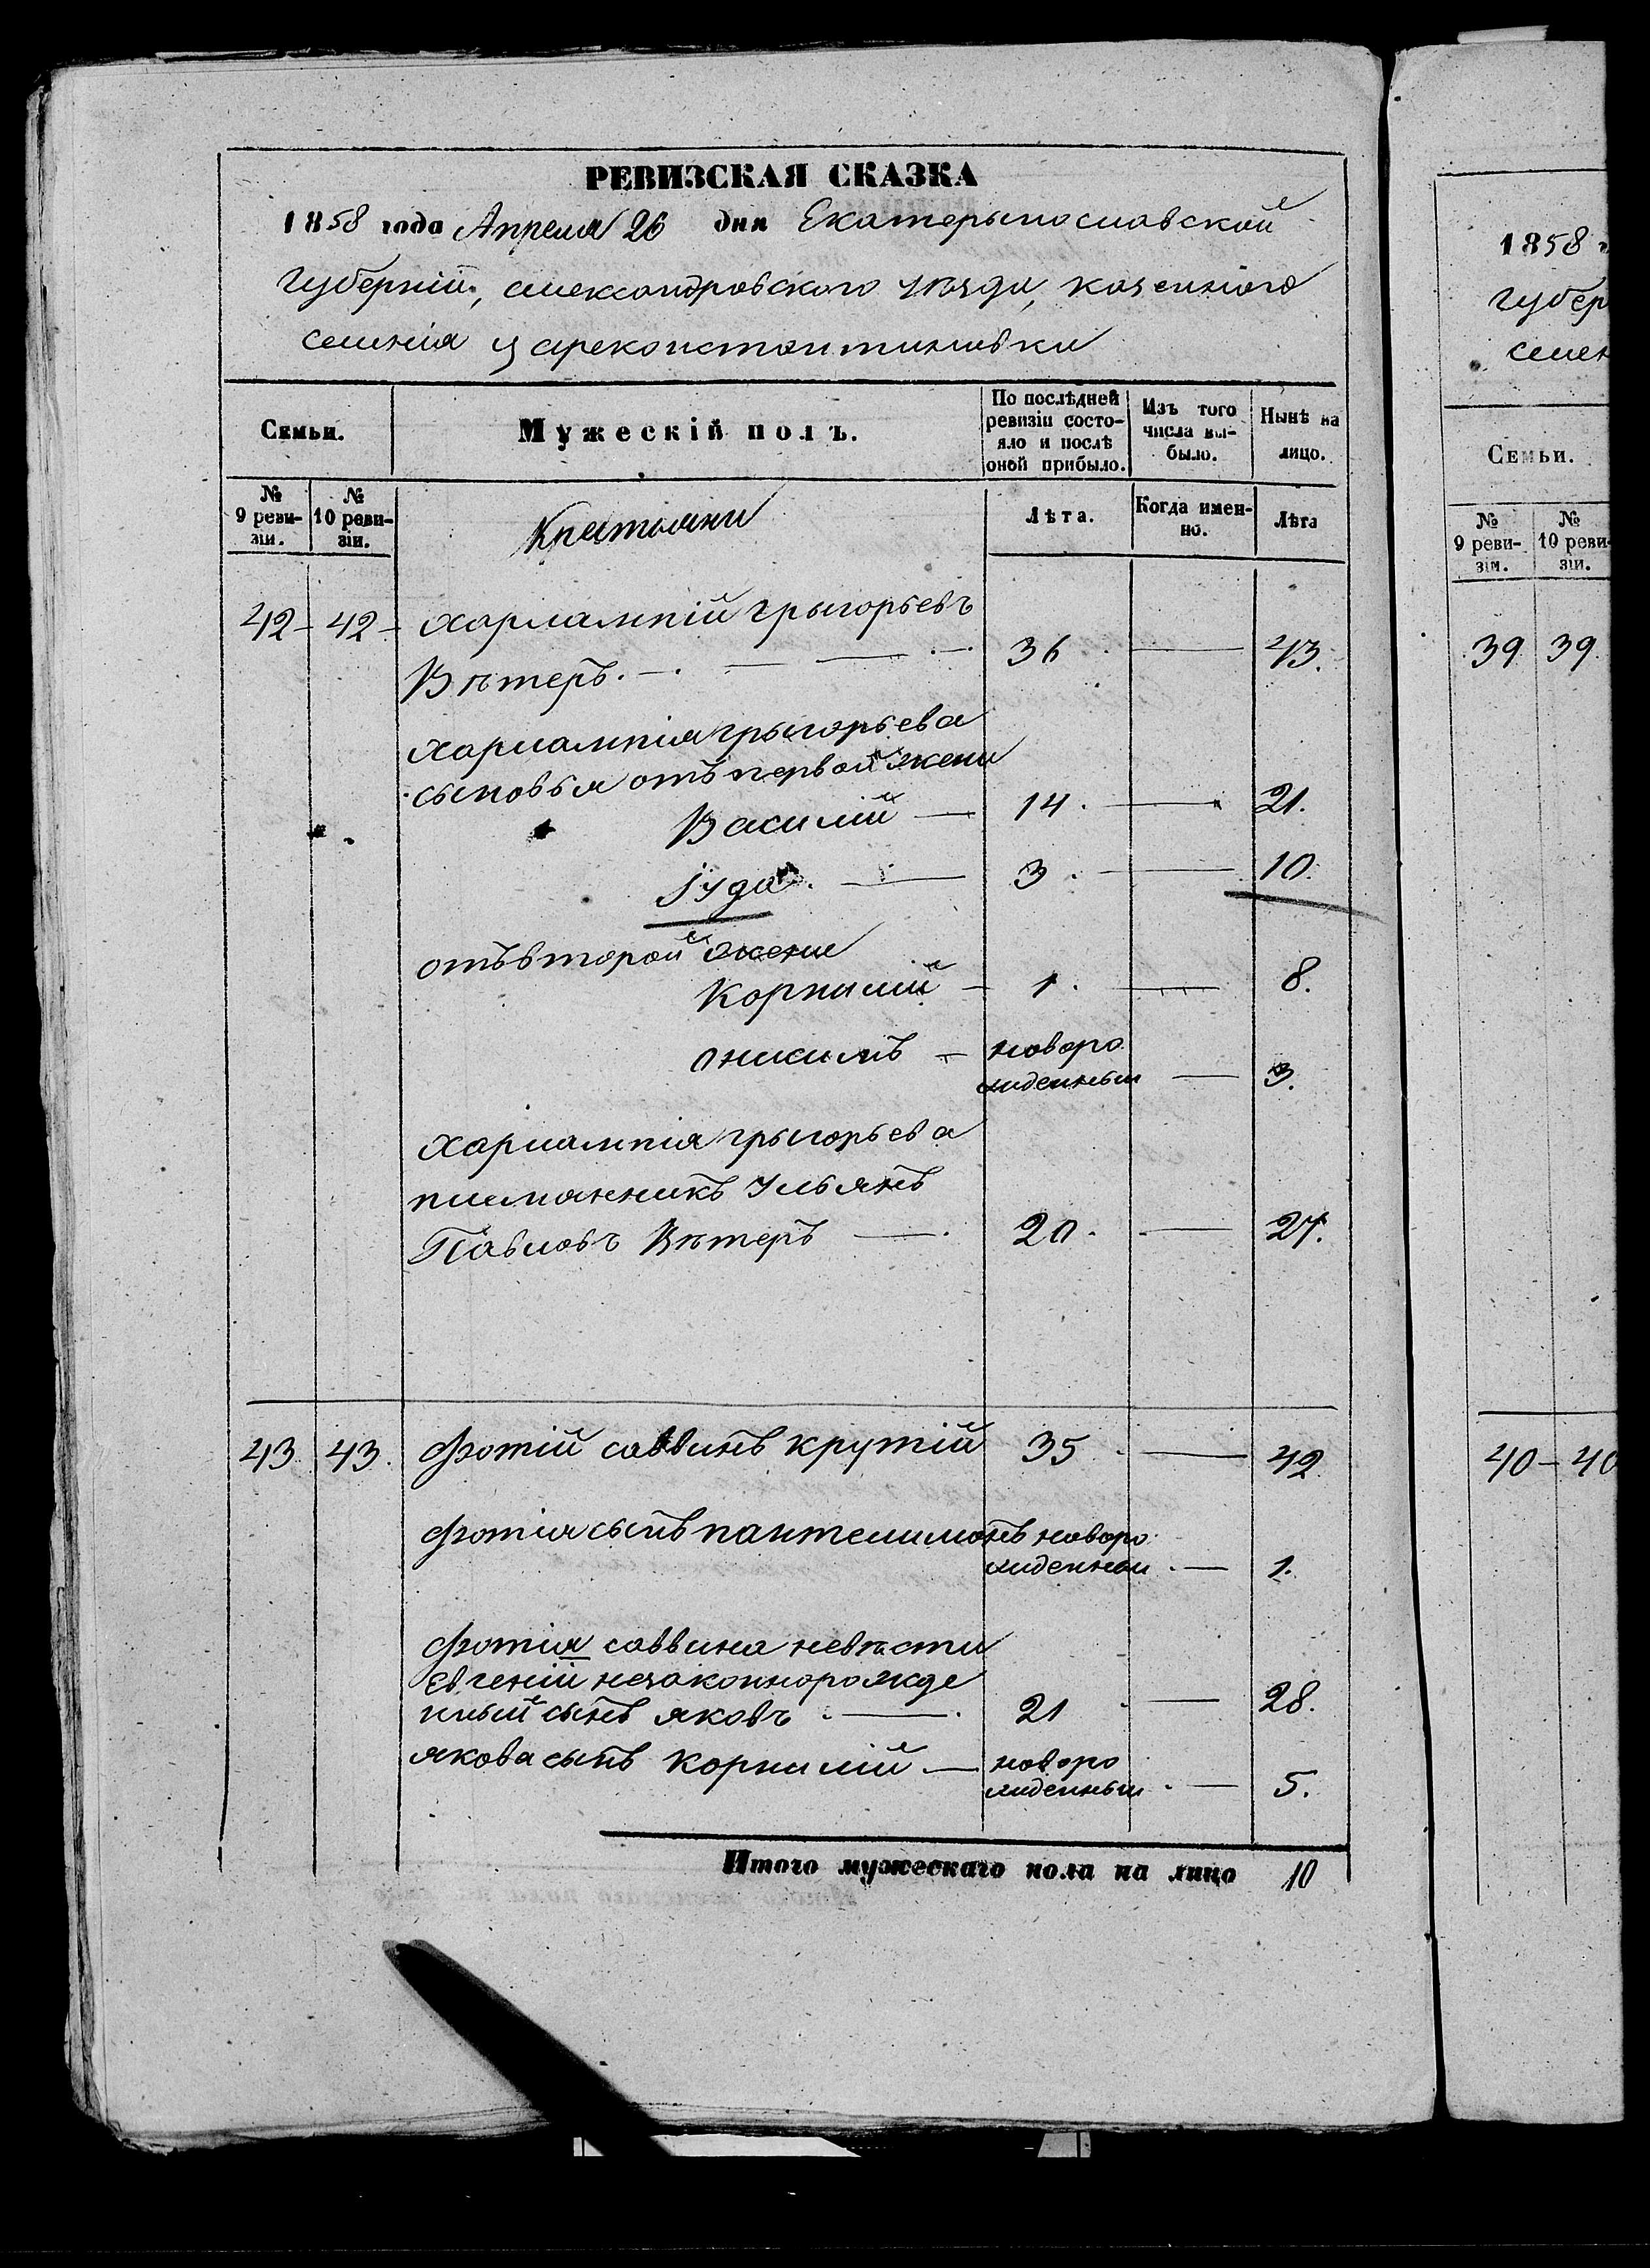 РЕВИЗСКАЯ СКАЗКА
1858 года Апреля 26 дня Екатерынославской
губерніи, александровского уѣзда, казенного
селенія цареконстантиновки
Семьи.
Мужескій полъ.
По послѣдней ревизіи состояло и послѣ оной прибыло.
Изъ того числа выбыло.
Нынѣ на лицо.
№ 9 ревизіи.
№ 10 ревизіи.
Крестьяни
Лѣта.
Когда именно.
Лѣта
42 - 42 - харлампій грыгорьевъ
Вѣтеръ. — 36 — 43.
харлампія грыгорьева
сыновья отъ первой жены
Василій — 14. — 21.
Іуда. — 3. — 10.
отъ второй жены
Корнилій — 1. — 8.
онисимъ — новоро
жденный — 3.
харлампія грыгорьева
племянникъ Ульянъ
Павловъ Вѣтеръ — 20. — 27.
43. 43. фотій саввинъ крутій 35 — 42
фотія сынъ пантелимонъ новоро
жденный. — 1.
фотія саввина невѣсти
Евгеніи незаконнорожде
нный сынъ яковъ. — 21 — 28.
якова сынъ корнилій — новоро
жденный. — 5.
Итого мужескаго пола на лицо 10
1858
губер
селен
Семьи.
№ 9 ревизіи.
№ 10 реви-
зіи.
39 39.
40 - 40